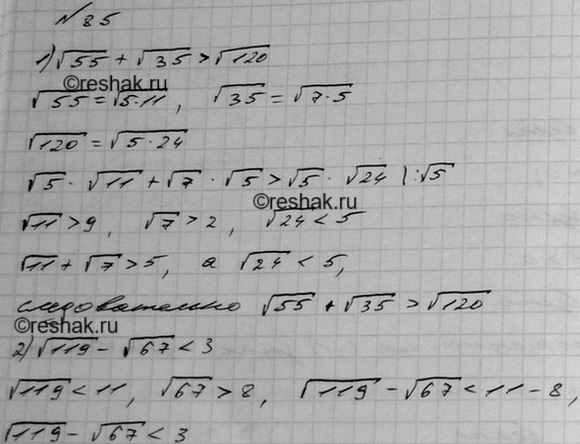 № 85
1) √55 + √35 > √120
©reshak.ru
√55 = √5·11, √35 = √7·5
√120 = √5·24
√5 · √11 + √7 · √5 > √5 · √24 |:√5
©reshak.ru
√11 > 9, √7 > 2, √24 < 5
√11 + √7 > 5, а √24 < 5,
следовательно √55 + √35 > √120
©reshak.ru
2) √119 - √67 < 3
√119 < 11, √67 > 8, √119 - √67 < 11 - 8,
√119 - √67 < 3